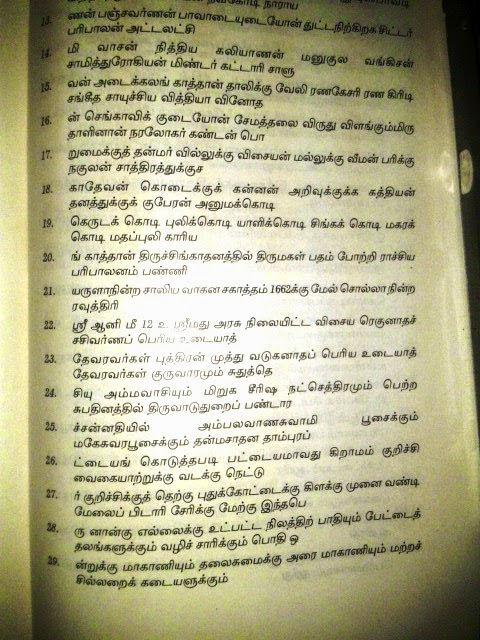 13. ணன் பஞ்சவர்ணன் பாவாடையுடையோன் துட்டநிற்கிறக சிட்டர்
பரிபாலன் அட்டலட்சி
14. மி வாசன் நித்திய கலியாணன் மனுகுல வங்கிசன்
சாமித்துரோகியன் மிண்டர் கட்டாரி சாளு
15. வன் அடைக்கலங் காத்தான் தாலிக்கு வேலி ரணகேசரி ரண கிரிடி
சங்கீத சாயுச்சிய வித்தியா வினோத
16. ன் செங்காவிக் குடையோன் சேமத்தலை விருது விளங்குமிரு
தாளினான் நரலோகர் கண்டன் பொ
17. றுமைக்குத் தன்மர் வில்லுக்கு விசையன் மல்லுக்கு வீமன் பரிக்கு
நகுலன் சாத்திரத்துக்குச
18. காதேவன் கொடைக்குக் கன்னன் அறிவுக்குக்க கத்தியன்
தனத்துக்குக் குபேரன் அனுமக்கொடி
19. கெருடக் கொடி புலிக்கொடி யாளிக்கொடி சிங்கக் கொடி மகரக்
கொடி மதப்புலி காரிய
20. ங் காத்தான் திருச்சிங்காதனத்தில் திருமகள் பதம் போற்றி ராச்சிய
பரிபாலனம் பண்ணி
21. யருளாநின்ற சாலிய வாகன சகாத்தம் 1662க்கு மேல் சொல்லாநின்ற
ரவுத்திரி
22. ஸ்ரீ ஆனி மீ 12 உ ஸ்ரீமது அரசு நிலையிட்ட விசைய ரெகுனாதச்
சசிவர்ணப் பெரிய உடையாத்
23. தேவரவர்கள் புத்திரன் முத்து வடுகனாதப் பெரிய உடையாத்
தேவரவர்கள் குருவாரமும் சுதுத்தெ
24. சியு அம்மவாசியும் மிறுக சீரிஷ நட்செத்திரமும் பெற்ற
சுபதினத்தில் திருவாடுதுறைப் பண்டார
25. ச்சன்னதியில் அம்பலவாணசுவாமி பூசைக்கும்
மகேசுவரபூசைக்கும் தன்மசாதன தாம்புரப்
26. ட்டையங் கொடுத்தபடி பட்டையமாவது கிறாமம் குறிச்சி
வைகையாற்றுக்கு வடக்கு நெட்டு
27. ர் குறிச்சிக்குத் தெற்கு புதுக்கோட்டைக்கு கிளக்கு முனை வண்டி
மேலைப் பிடாரி சேரிக்கு மேற்கு இந்தபெ
28. ரு னான்கு எல்லைக்கு உட்பட்ட நிலத்திற் பாதியும் பேட்டைத்
தலங்களுக்கும் வழிச் சாரிக்கும் பொதி ஒ
29. ன்றுக்கு மாகாணியும் தலைசுமைக்கு அரை மாகாணியும் மற்றச்
சில்லறைக் கடையளுக்கும்